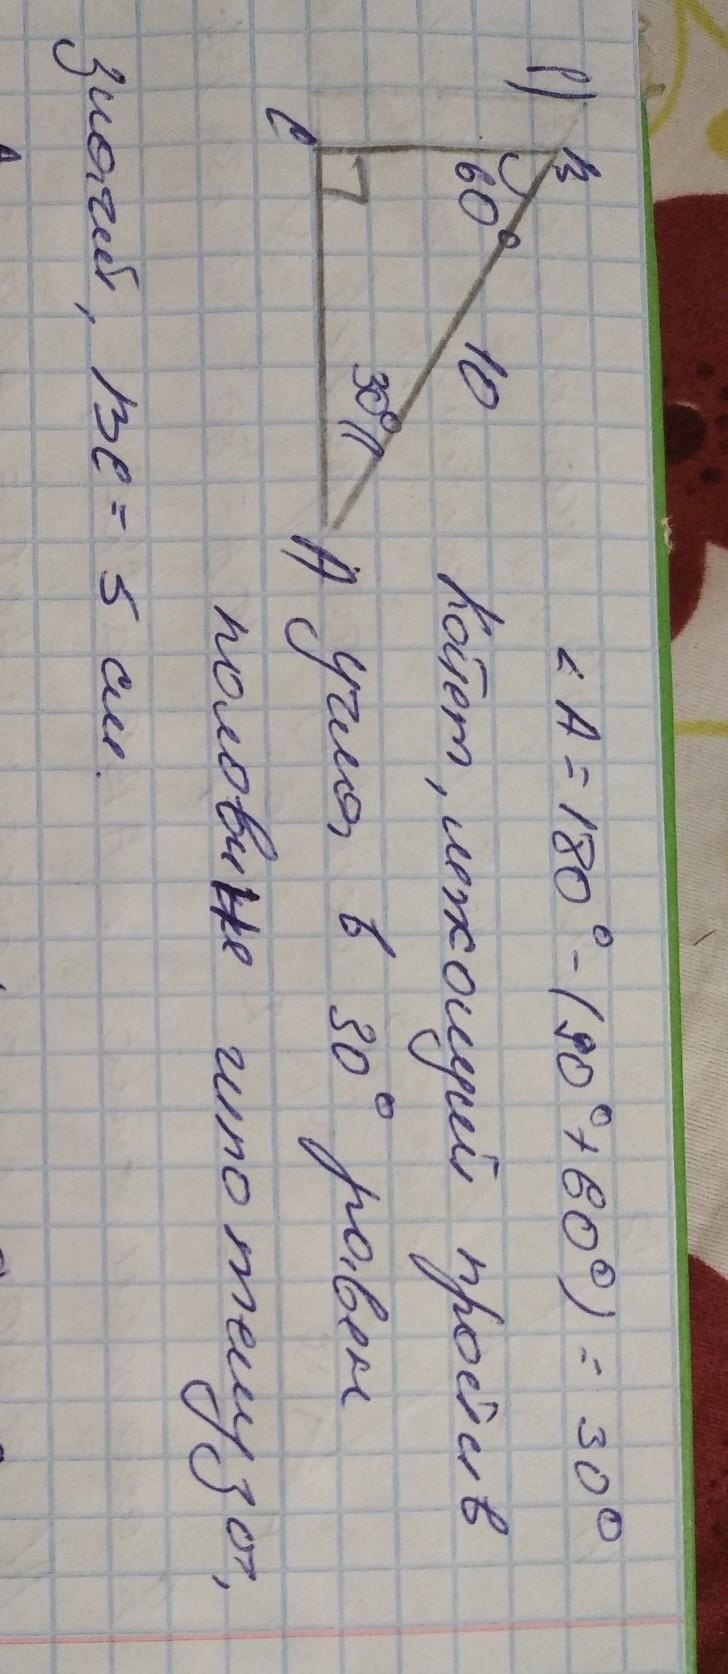 1)
B
60°
10
C
30°
A
∠A = 180° - (90° + 60°) = 30°
Катет, лежащий против
угла в 30° равен
половине гипотенузы,
значит, BC = 5 см.